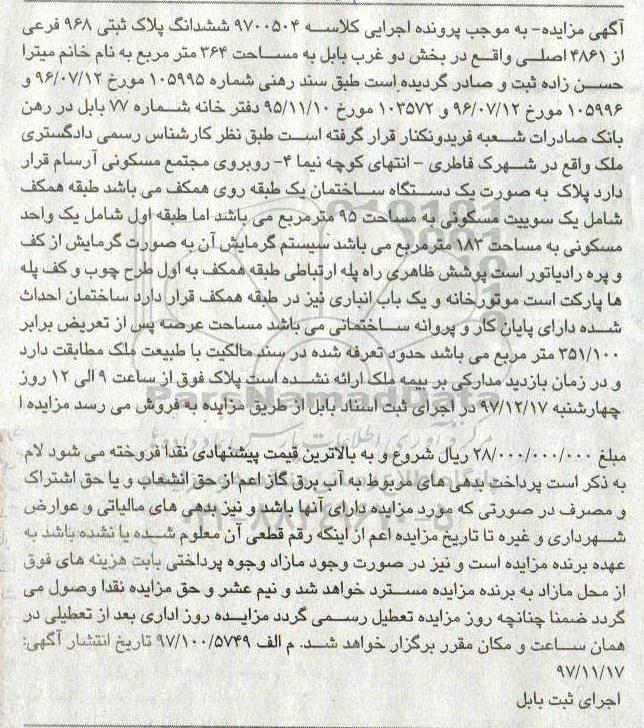 آگهی مزایده- به موجب پرونده اجرایی کلاسه ۹۷۰۰۵۰۴ ششدانگ پلاک ثبتی ۹۶۸ فرعی
از ۴۸۶۱ اصلی واقع در بخش دو غرب بابل به مساحت ۳۶۴ متر مربع به نام خانم میترا
حسن زاده ثبت و صادر گردیده است طبق سند رهنی شماره ۱۰۵۹۹۵ مورخ ۹۶/۰۷/۱۲ و
۱۰۵۹۹۶ مورخ ۹۶/۰۷/۱۲ و ۱۰۳۵۷۲ مورخ ۹۵/۱۱/۱۰ دفتر خانه شماره ۷۷ بابل در رهن
بانک صادرات شعبه فریدونکنار قرار گرفته است طبق نظر کارشناس رسمی دادگستری
ملک واقع در شهرک فاطری - انتهای کوچه نیما ۴- روبروی مجتمع مسکونی آرسام قرار
دارد پلاک به صورت یک دستگاه ساختمان یک طبقه روی همکف می باشد طبقه همکف
شامل یک سوییت مسکونی به مساحت ۹۵ مترمربع می باشد اما طبقه اول شامل یک واحد
مسکونی به مساحت ۱۸۳ مترمربع می باشد سیستم گرمایش آن به صورت گرمایش از کف
و پره رادیاتور است پوشش ظاهری راه پله ارتباطی طبقه همکف به اول طرح چوب و کف پله
ها پارکت است موتورخانه و یک باب انباری نیز در طبقه همکف قرار دارد ساختمان احداث
شده دارای پایان کار و پروانه ساختمانی می باشد مساحت عرصه پس از تعریض برابر
۳۵۱/۱۰۰ متر مربع می باشد حدود تعرفه شده در سند مالکیت با طبیعت ملک مطابقت دارد
و در زمان بازدید مدارکی بر بیمه ملک ارائه نشده است پلاک فوق از ساعت ۹ الی ۱۲ روز
چهارشنبه ۹۷/۱۲/۱۷ در اجرای ثبت اسناد بابل از طریق مزایده به فروش می رسد مزایده ا
مبلغ ۲۸/۰۰۰/۰۰۰/۰۰۰ ریال شروع و به بالاترین قیمت پیشنهادی نقدا فروخته می شود لام
به ذکر است پرداخت بدهی های مربوط به آب برق گاز اعم از حق انشعاب و یا حق اشتراک
و مصرف در صورتی که مورد مزایده دارای آنها باشد و نیز بدهی های مالیاتی و عوارض
شهرداری و غیره تا تاریخ مزایده اعم از اینکه رقم قطعی آن معلوم شده یا نشده باشد به
عهده برنده مزایده است و نیز در صورت وجود مازاد وجوه پرداختی بابت هزینه های فوق
از محل مازاد به برنده مزایده مسترد خواهد شد و نیم عشر و حق مزایده نقدا وصول می
گردد ضمنا چنانچه روز مزایده تعطیل رسمی گردد مزایده روز اداری بعد از تعطیلی در
همان ساعت و مکان مقرر برگزار خواهد شد. م الف ۹۷/۱۰۰/۵۷۴۹ تاریخ انتشار آگهی:
۹۷/۱۱/۱۷
اجرای ثبت بابل
ParsNamadData